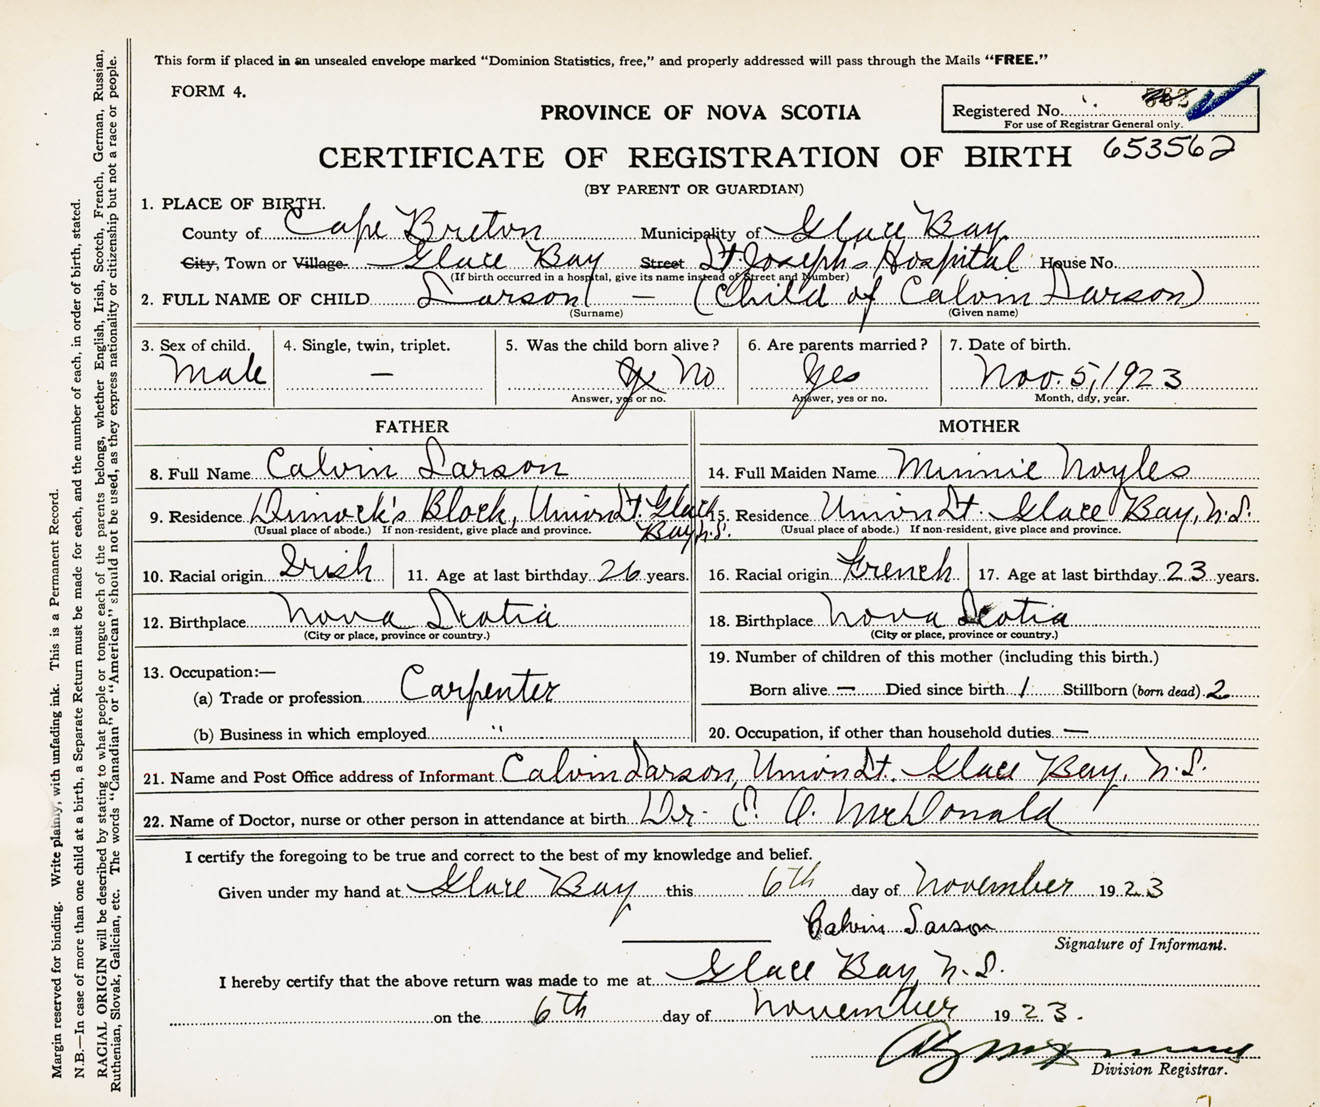 This form if placed in an unsealed envelope marked "Dominion Statistics, free," and properly addressed will pass through the Mails "FREE."
FORM 4.
Registered No.
For use of Registrar General only.
PROVINCE OF NOVA SCOTIA
CERTIFICATE OF REGISTRATION OF BIRTH 653562
(BY PARENT OR GUARDIAN)
1. PLACE OF BIRTH.
County of Cape Breton Municipality of Glace Bay
City, Town or Village Glace Bay Street St Josephs Hospital House No.
(If birth occurred in a hospital, give its name instead of Street and Number)
2. FULL NAME OF CHILD Larson — (Child of Calvin Larson)
(Surname) (Given name)
3. Sex of child. 4. Single, twin, triplet. 5. Was the child born alive? 6. Are parents married? 7. Date of birth.
Male — No Yes Nov. 5, 1923
Answer, yes or no. Answer, yes or no. Month, day, year.
FATHER MOTHER
8. Full Name Calvin Larson 14. Full Maiden Name Minnie Noyles
9. Residence Dimock's Block, Union St. Glace Bay, N.S. 15. Residence Union St. Glace Bay, N.S.
(Usual place of abode.) If non-resident, give place and province. (Usual place of abode.) If non-resident, give place and province.
10. Racial origin Irish 11. Age at last birthday 26 years. 16. Racial origin French 17. Age at last birthday 23 years.
12. Birthplace Nova Scotia 18. Birthplace Nova Scotia
(City or place, province or country.) (City or place, province or country.)
19. Number of children of this mother (including this birth.)
13. Occupation:—
(a) Trade or profession Carpenter Born alive — Died since birth 1 Stillborn (born dead) 2
(b) Business in which employed " 20. Occupation, if other than household duties —
21. Name and Post Office address of Informant Calvin Larson, Union St. Glace Bay, N.S.
22. Name of Doctor, nurse or other person in attendance at birth Dr. E. O. McDonald
I certify the foregoing to be true and correct to the best of my knowledge and belief.
Given under my hand at Glace Bay this 6th day of November 1923
Calvin Larson
Signature of Informant.
I hereby certify that the above return was made to me at Glace Bay N.S.
on the 6th day of November 1923.
Division Registrar.
Margin reserved for binding. Write plainly, with unfading ink. This is a Permanent Record.
N.B.—In case of more than one child at a birth, a Separate Return must be made for each, and the number of each, in order of birth, stated.
RACIAL ORIGIN will be described by stating to what people or tongue each of the parents belongs, whether English, Irish, Scotch, French, German, Russian,
Ruthenian, Slovak, Galician, etc. The words "Canadian" or "American" should not be used, as they express nationality or citizenship but not a race or people.